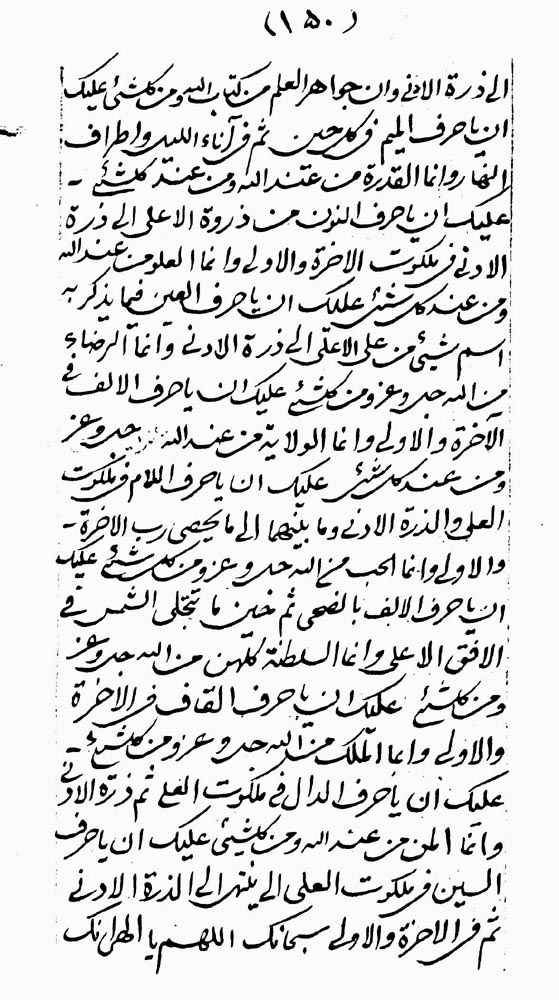 (١٥٠)
الى ذرة الادنى وان جواهر العلم من كتاب الله ومن كلشئ عليك
ان يا حرف الميم فى كل حين ثم فى آناء الليل واطراف
النهار وانما القدرة من عند الله ومن عند كلشئ -
عليك ان يا حرف النون من ذروة الاعلى الى ذرة
الادنى فى ملكوت الاخرة والاولى وانما العلو من عند الله
ومن عند كل شئ عليك ان يا حرف العين فيما يذكر به
اسم شيئ من على الاعلى الى ذرة الادنى وانما الرضاء
من الله جل وعز ومن كلشئ عليك ان يا حرف الالف فى
الآخرة والاولى وانما الولاية من عند الله جل وعز
ومن عند كل شئ عليك ان يا حرف اللام فى ملكوت
العلى والذرة الادنى وما بينهما الى ما يحصى رب الاخرة -
والاولى وانما الحب من الله جل وعز ومن كل شئ عليك
ان يا حرف الالف بالضحى ثم حين ما تتجلى الشمس فى
الافق الاعلى وانما السلطنة كلهن من الله جل وعز
ومن كلشئ عليك ان يا حرف القاف فى الاخرة
والاولى وانما الملك من الله جل وعز ومن كلشئ -
عليك ان يا حرف الدال فى ملكوت العلى ثم ذرة الادنى
وانما المن من عند الله ومن كلشيئ عليك ان يا حرف
السين فى ملكوت العلى الى ينتهى الى الذرة الادنى
ثم فى الاخرة والاولى سبحانك اللهم يا الهى انك